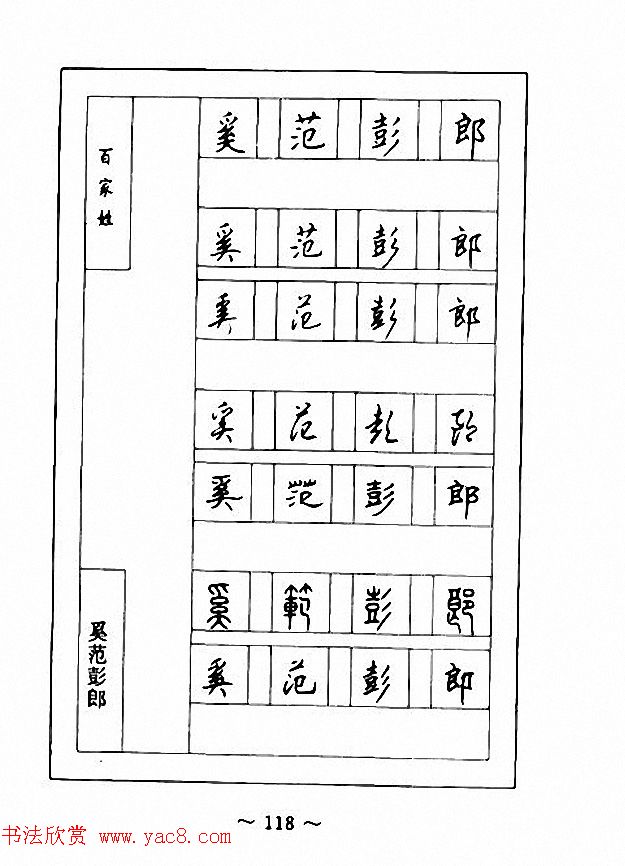 百家姓
奚范彭郎
奚范彭郎
奚范彭郎
奚范彭郎
奚范彭郎
奚範彭郎
奚范彭郎
奚范彭郎
~ 118 ~
书法欣赏 www.yac8.com